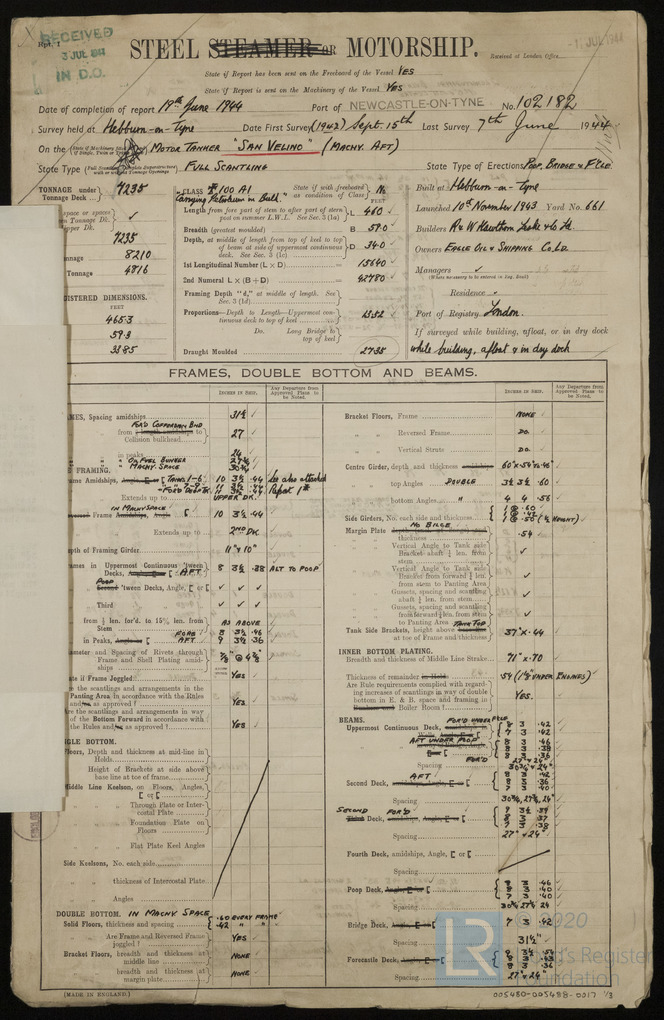 RECEIVED
3 JUL 1944
IN D.O.
Rpt. 1
STEEL STEAMER OR MOTORSHIP.
Received at London Office
-1 JUL 1944
State if Report has been sent on the Freeboard of the Vessel YES
State if Report is sent on the Machinery of the Vessel YES
Date of completion of report 19th June 1944 Port of NEWCASTLE-ON-TYNE No. 102182
Survey held at Hebburn-on-Tyne Date First Survey (1942) Sept. 15th Last Survey 7th June 1944
On the MOTOR TANKER "SAN VELINO" (MACHY AFT)
State Type FULL SCANTLING State Type of Erections POOP, BRIDGE & F'CLE.
TONNAGE under Tonnage Deck 7235
space or spaces
7235
8210
Tonnage 4816
REGISTERED DIMENSIONS.
FEET
465.3
59.3
33.85
CLASS 100 A1 State if with freeboard as condition of Class No
"Carrying Petroleum in Bulk"
Length from fore part of stem to after part of stern post on summer L.W.L. See Sec. 3 (1a) L 460
Breadth (greatest moulded) B 59.0
Depth, at middle of length from top of keel to top of beam at side of uppermost continuous deck. See Sec. 3 (1c) D 34.0
1st Longitudinal Number (L × D) 15640
2nd Numeral L × (B + D) 42780
Framing Depth "d," at middle of length. See Sec. 3 (1d)
Proportions—Depth to Length—Uppermost continuous deck to top of keel 13.52
Do. Long Bridge to top of keel
Draught Moulded 27.35
Built at Hebburn-on-Tyne
Launched 10th November 1943 Yard No. 661
Builders R & W Hawthorn Leslie & Co Ltd.
Owners EAGLE OIL & SHIPPING CO. LD.
Managers
(Where necessary to be entered in Reg. Book)
Residence
Port of Registry London.
If surveyed while building, afloat, or in dry dock
while building, afloat & in dry dock
FRAMES, DOUBLE BOTTOM AND BEAMS.
INCHES IN SHIP. Any Departure from Approved Plans to be Noted.
FRAMES, Spacing amidships 31½
Collision bulkhead 27
in peaks 24
OIL FUEL BUNKER
MACHY SPACE 30¾
FRAMING.
Frame Amidships, Angle TANKS 1-6 10 3½ .44 See also attached
Report 1*
Extends up to UPPER DK.
IN MACHY SPACE
Reversed Frame Amidships, Angle 10 3½ .44
Extends up to 2ND DK.
Depth of Framing Girder 11" & 10"
Frames in Uppermost Continuous 'tween Decks, AFT 8 3½ .38 ALT TO POOP
POOP
Second 'tween Decks, Angle, [ or [
Third
from ⅕ len. for'd. to 15% len. from Stem AS ABOVE
in Peaks, FOR'D 8 3½ .46
AFT 9 3½ .36
Diameter and Spacing of Rivets through Frame and Shell Plating amidships ⅞" @ 4⅞"
State if Frame Joggled YES
Are the scantlings and arrangements in the Panting Area in accordance with the Rules and as approved? YES
Are the scantlings and arrangements in way of the Bottom Forward in accordance with the Rules and as approved? YES
SINGLE BOTTOM.
Floors, Depth and thickness at mid-line in Holds
Height of Brackets at side above base line at toe of frame
Middle Line Keelson, on Floors, Angles, [ or [
Through Plate or Intercostal Plate
Foundation Plate on Floors
Flat Plate Keel Angles
Side Keelsons, No. each side
thickness of Intercostal Plate
Angles
DOUBLE BOTTOM. IN MACHY SPACE
Solid Floors, thickness and spacing .60 EVERY FRAME
.42 " "
Are Frame and Reversed Frame joggled? YES
Bracket Floors, breadth and thickness at middle line NONE
breadth and thickness at margin plate NONE
INCHES IN SHIP. Any Departure from Approved Plans to be Noted.
Bracket Floors, Frame NONE
" " Reversed Frame DO.
" " Vertical Struts DO.
Centre Girder, depth and thickness amidships 60" × 54" × .46"
" top Angles DOUBLE 3½ 3½ .60
" bottom Angles " 4 4 .56
Side Girders, No. each side and thickness
1 @ .50 (½ HEIGHT)
NO BILGE
Margin Plate thickness .54
Vertical Angle to Tank side Bracket abaft ¼ len. from stem
Vertical Angle to Tank side Bracket from forward ¼ len. from stem to Panting Area
Gussets, spacing and scantling abaft ¼ len. from stem
Gussets, spacing and scantling from forward ¼ len. from stem to Panting Area
TANK TOP
Tank Side Brackets, height above at toe of Frame and thickness 37" × .44
INNER BOTTOM PLATING.
Breadth and thickness of Middle Line Strake 71" × .70
Thickness of remainder in Holds .54 (1⅛" UNDER ENGINES)
Are Rule requirements complied with regarding increases of scantlings in way of double bottom in E. & B. space and framing in Bunkers and Boiler Room? YES.
BEAMS.
FOR'D UNDER F'CLE
Uppermost Continuous Deck, 8 3 .42
7 3 .42
AFT UNDER POOP 8 3 .46
8 3 .38
8 3 .36
FOR'D 27" & 24"
Spacing 30¾" & 24"
AFT
Second Deck, amidships, Angle, [ or [ 8 3 .42
8 3 .36
7 3 .40
Spacing 30¾, 27½, 24"
SECOND FOR'D
Third Deck, amidships, Angle, [ or [ 9 3½ .39
8 3 .37
7 3 .38
Spacing 27" & 24"
Fourth Deck, amidships, Angle, [ or [
Spacing
Poop Deck, Angle, [ or [ 8 3 .46
8 3 .40
7 3 .40
Spacing 30¾, 27½, 24
Bridge Deck, Angle, [ or [ 7 3 .42
Spacing 31½"
Forecastle Deck, Angle, [ or [
8 3 .36
Spacing 27" & 24"
(MADE IN ENGLAND.)
005480-005488-0017 1/3
LR
© 2020
Lloyd's Register
Foundation